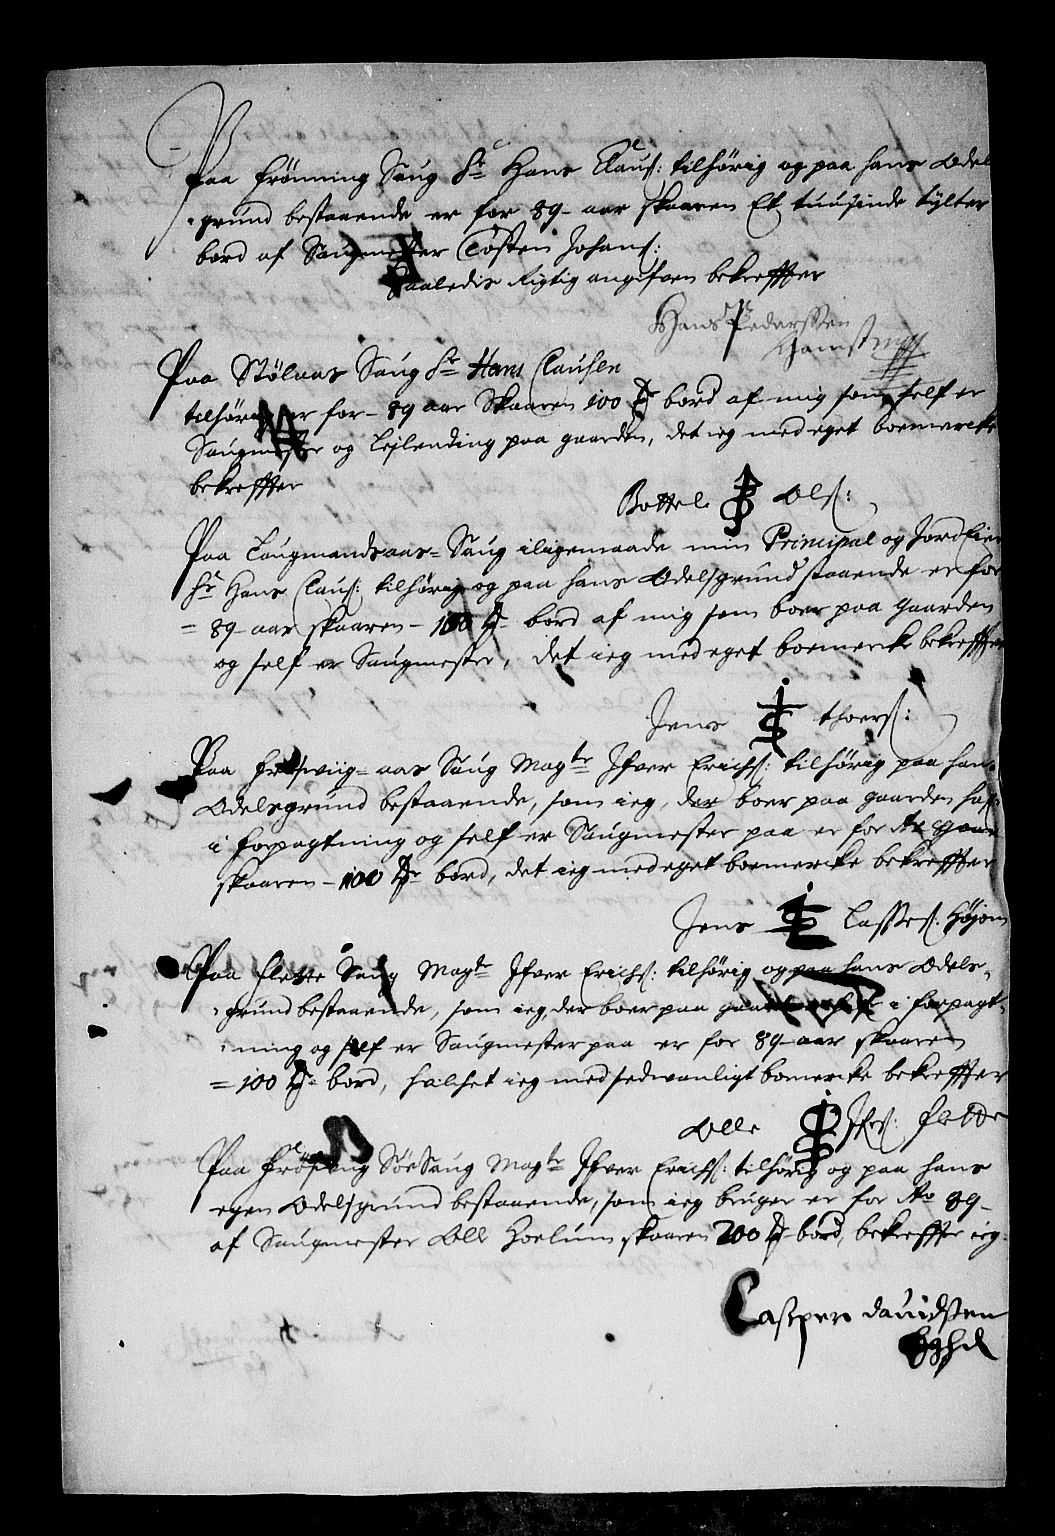 Paa Frönning Saug Hr Hans Clauſ: tilhörig og paa hans Odel
grund bestaaende er for 89 aar skaaren Et tuusinde tylter
bord af Saugmester Tosten Johanſ:
Saaledis Rigtig angifven bekreffter
Hans Pederssen
Paa Stölaas Saug Hr Hans Clausen
tilhörig er for 89 aar Skaaren 100 bord af mig som self er
Saugmester og Lejlending paa gaarden, det ieg med eget boemercke
bekreffter
Bottel Olſ:
Paa Laugmandsaas Saug iligemaade min Principal og Jord Eier
Hr Hans Clauſ: tilhörig og paa hans Odelsgrund staaende er for
89 aar skaaren 100 bord af mig som boer paa gaarden
og self er Saugmester, det ieg med eget boemercke bekreffter
Jens thoerſ:
Paa aas Saug Magtr Ifver Erichſ: tilhörig paa hans
Odelsgrund bestaaende, som ieg, der boer paa gaarden haf
i forpagtning og self er Saugmester paa er for Ao
skaaren 100 bord, det ieg med eget boemercke bekreffter
Jens Lasseſ: Höjom
Paa flette Saug Magtr Ifver Erichſ: tilhörig og paa hans Odels-
grund bestaaende, som ieg, der boer paa i forpagt-
ning og self er Saugmester paa er for 89 aar skaaren
100 bord, hvilchet ieg med sedvanligt bomercke bekreffter
Olle flette
Paa Saug Magtr Ifver Erichſ: tilhörig og paa hans
egen Odelsgrund bestaaende, som ieg bruger er for Ao 89
af Saugmester Olle Hoelum skaaren 200 bord, bekreffter ieg
Casper Dauidsten